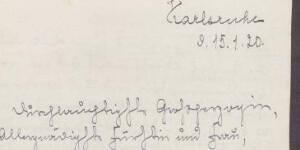 Karlsruhe
d. 15.1.20.
Durchlauchtigste Großherzogin,
Allergnädigste Fürstin und Frau,